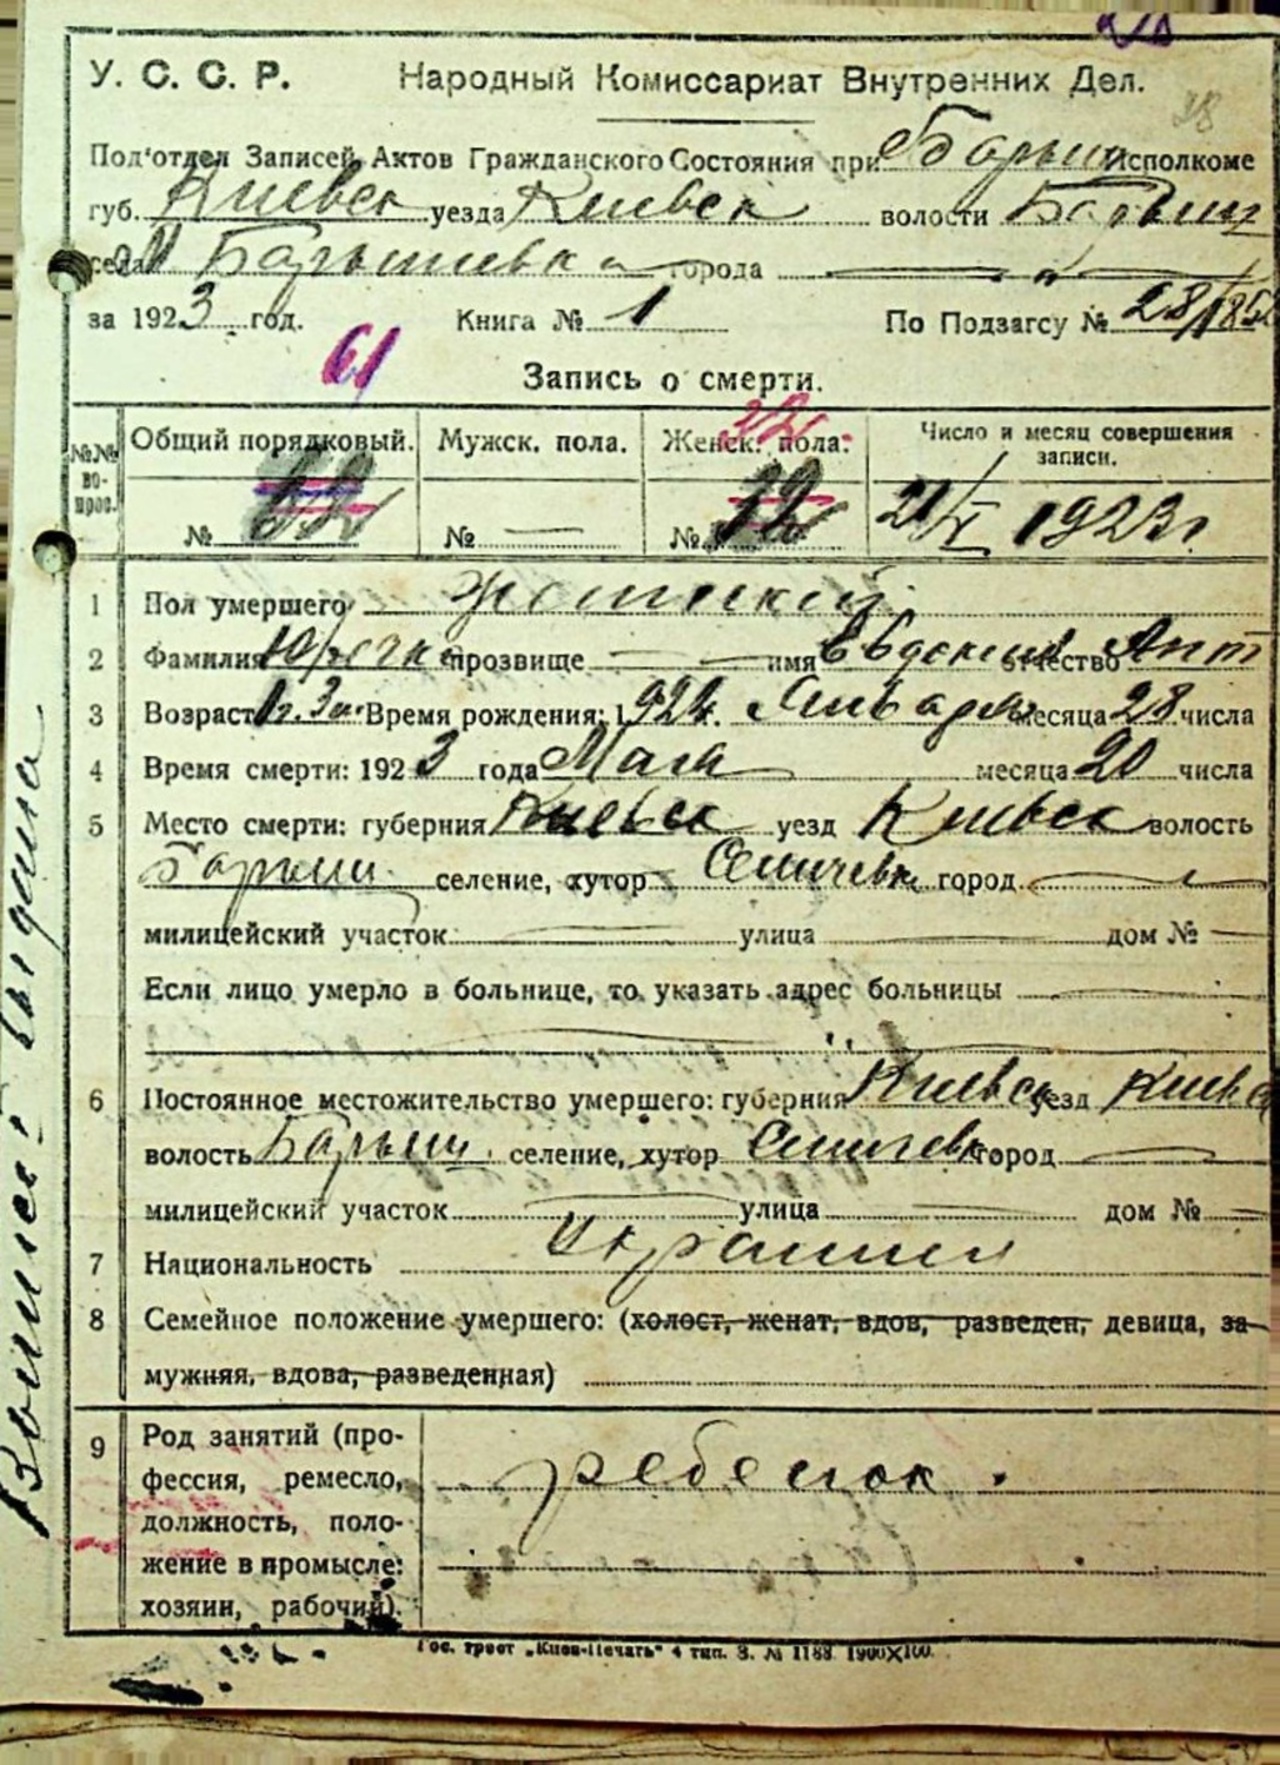 У. С. С. Р. Народный Комиссариат Внутренних Дел.
Под'отдел Записей Актов Гражданского Состояния при Барыш исполкоме
губ. Киевск уезда Киевск волости Барыш
села Барышевка города
за 1923 год. Книга № 1 По Подзагсу № 28/1852
61
Запись о смерти.
№№ вопрос. Общий порядковый. Мужск. пола. Женск. пола. Число и месяц совершения записи.
№ № № 32 21/V 1923 г
1 Пол умершего женский
2 Фамилия Юрочка прозвище имя Евдокия отчество Ант
3 Возраст 1 г. 3 м. Время рождения: 1922 г. Января месяца 28 числа
4 Время смерти: 1923 года Мая месяца 20 числа
5 Место смерти: губерния Киевск уезд Киевск волость
Барыш селение, хутор Сеничевк город
милицейский участок улица дом №
Если лицо умерло в больнице, то указать адрес больницы
6 Постоянное местожительство умершего: губерния Киевск уезд Киевск
волость Барыш. селение, хутор Сеничевк город
милицейский участок улица дом №
7 Национальность Украинка
8 Семейное положение умершего: (холост, женат, вдов, разведен, девица, за-
мужняя, вдова, разведенная)
9 Род занятий (про-
фессия, ремесло,
должность, поло-
жение в промысле:
хозяин, рабочий).
ребенок.
Гос. трест „Киев-Печать“ 4 тип. З. № 1188 1900Х100.
выдана